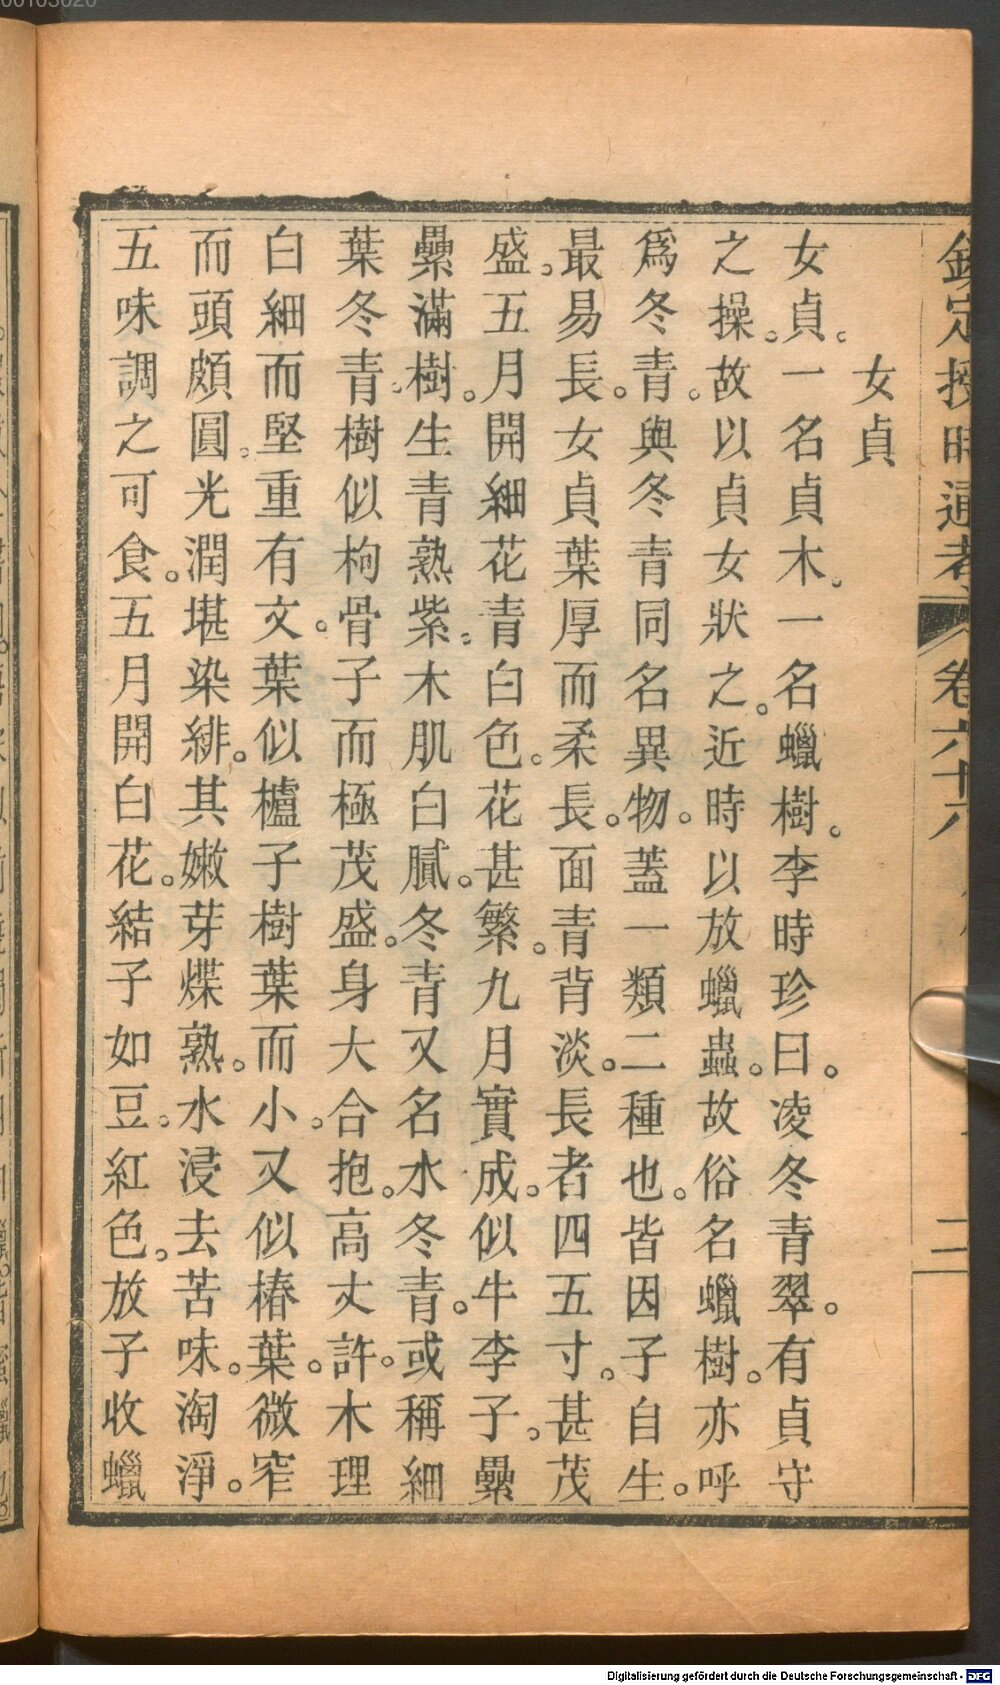 欽定授時通考 卷六十六 二
女貞
女貞。一名貞木。一名蠟樹。李時珍曰。凌冬青翠。有貞守
之操。故以貞女狀之。近時以放蠟蟲。故俗名蠟樹。亦呼
爲冬青。與冬青同名異物。蓋一類二種也。皆因子自生。
最易長。女貞葉厚而柔長。面青背淡。長者四五寸。甚茂
盛。五月開細花青白色。花甚繁。九月實成。似牛李子。纍
纍滿樹。生青熟紫。木肌白膩。冬青又名水冬青。或稱細
葉冬青。樹似枸骨子而極茂盛。身大合抱。高丈許。木理
白細而堅重有文。葉似櫨子樹葉而小。又似椿葉。微窄
而頭頗圓。光潤堪染緋。其嫩芽煠熟。水浸去苦味。淘淨。
五味調之可食。五月開白花。結子如豆。紅色。放子收蠟
Digitalisierung gefördert durch die Deutsche Forschungsgemeinschaft - DFG